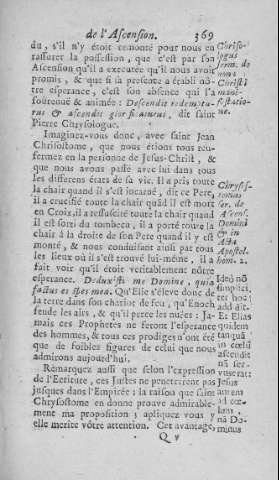 de l'Ascension. 369
du, s'il n'y étoit remonté pour nous en
rassurer la possession, que c'est par son
Ascension qu'il a executée qu'il nous avoit
promis, & que si sa presence a établi nô-
tre esperance, c'est son absence qui l'a
soûtenuë & animée : Descendit redempturus
& ascendit glorificaturus, dit saint
Pierre Chrysologue.
Imaginez-vous donc, avec saint Jean
Chrisostome, que nous étions tous ren-
fermez en la personne de Jesus-Christ, &
que nous avons passé avec lui dans tous
les differens états de sa vie. Il a pris toute
la chair quand il s'est incarné, dit ce Pere,
il a crucifié toute la chair quãd il est mort
en Croix, il a ressuscité toute la chair quand
il est sorti du tombeau, il a porté toute la
chair à la droite de son Pere quand il y est
monté, & nous conduisant ainsi par tous
les lieux où il s'est trouvé lui-même, il a
fait voir qu'il étoit veritablement nôtre
esperance. Deduxisti me Domine, quia
factus es spes mea. Qu'Elie s'éleve donc de
la terre dans son chariot de feu, qu'Enoch
fende les airs, & qu'il perce les nuées : Ja-
mais ces Prophétes ne feront l'esperance
des hommes, & tous ces prodiges n'ont été
que de foibles figures de celui que nous
admirons aujourd'hui.
Remarquez aussi que selon l'expression
de l'Ecriture, ces Justes ne penetrerent pas
jusques dans l'Empirée : la raison que saint
Chrysostome en donne prouve admirable-
ment ma proposition ; apliquez vous y
elle merite vôtre attention. Cet avantage
Q v
Chriso-
logus
serm. de
Christi
mani-
festatio-
ne.
Chrysos-
tomus
ser. de
Ascens.
Domini
& in
Acta
Apostol.
hom.
Ideò nõ
simplici-
ter hoc
add dit.
Et Elias
quidem
tanquã
in cœlũ
ascendit
nã ser-
vus erat:
Jesus
autem
ad cœ-
lum,
nã Do-
minus